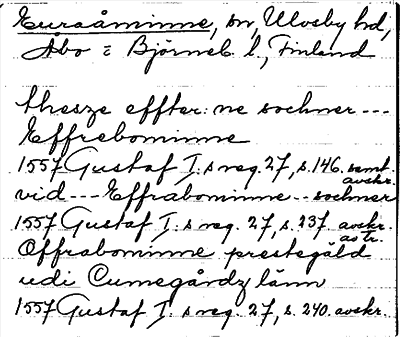 Euraåminne, sn, Ulvsby hd,
Åbo o Björneb. l., Finland
thesze effter:ne sochner ---
Effrebominne
1557 Gustaf I:s reg. 27, s. 146. samt. avskr.
vid --- Effrabominne -- sochner
1557 Gustaf I:s reg. 27, s. 237. avskr. as tr.
Offrabominne prestegäld
udi Cumegårdz länn
1557 Gustaf I:s reg. 27, s. 240. avskr.